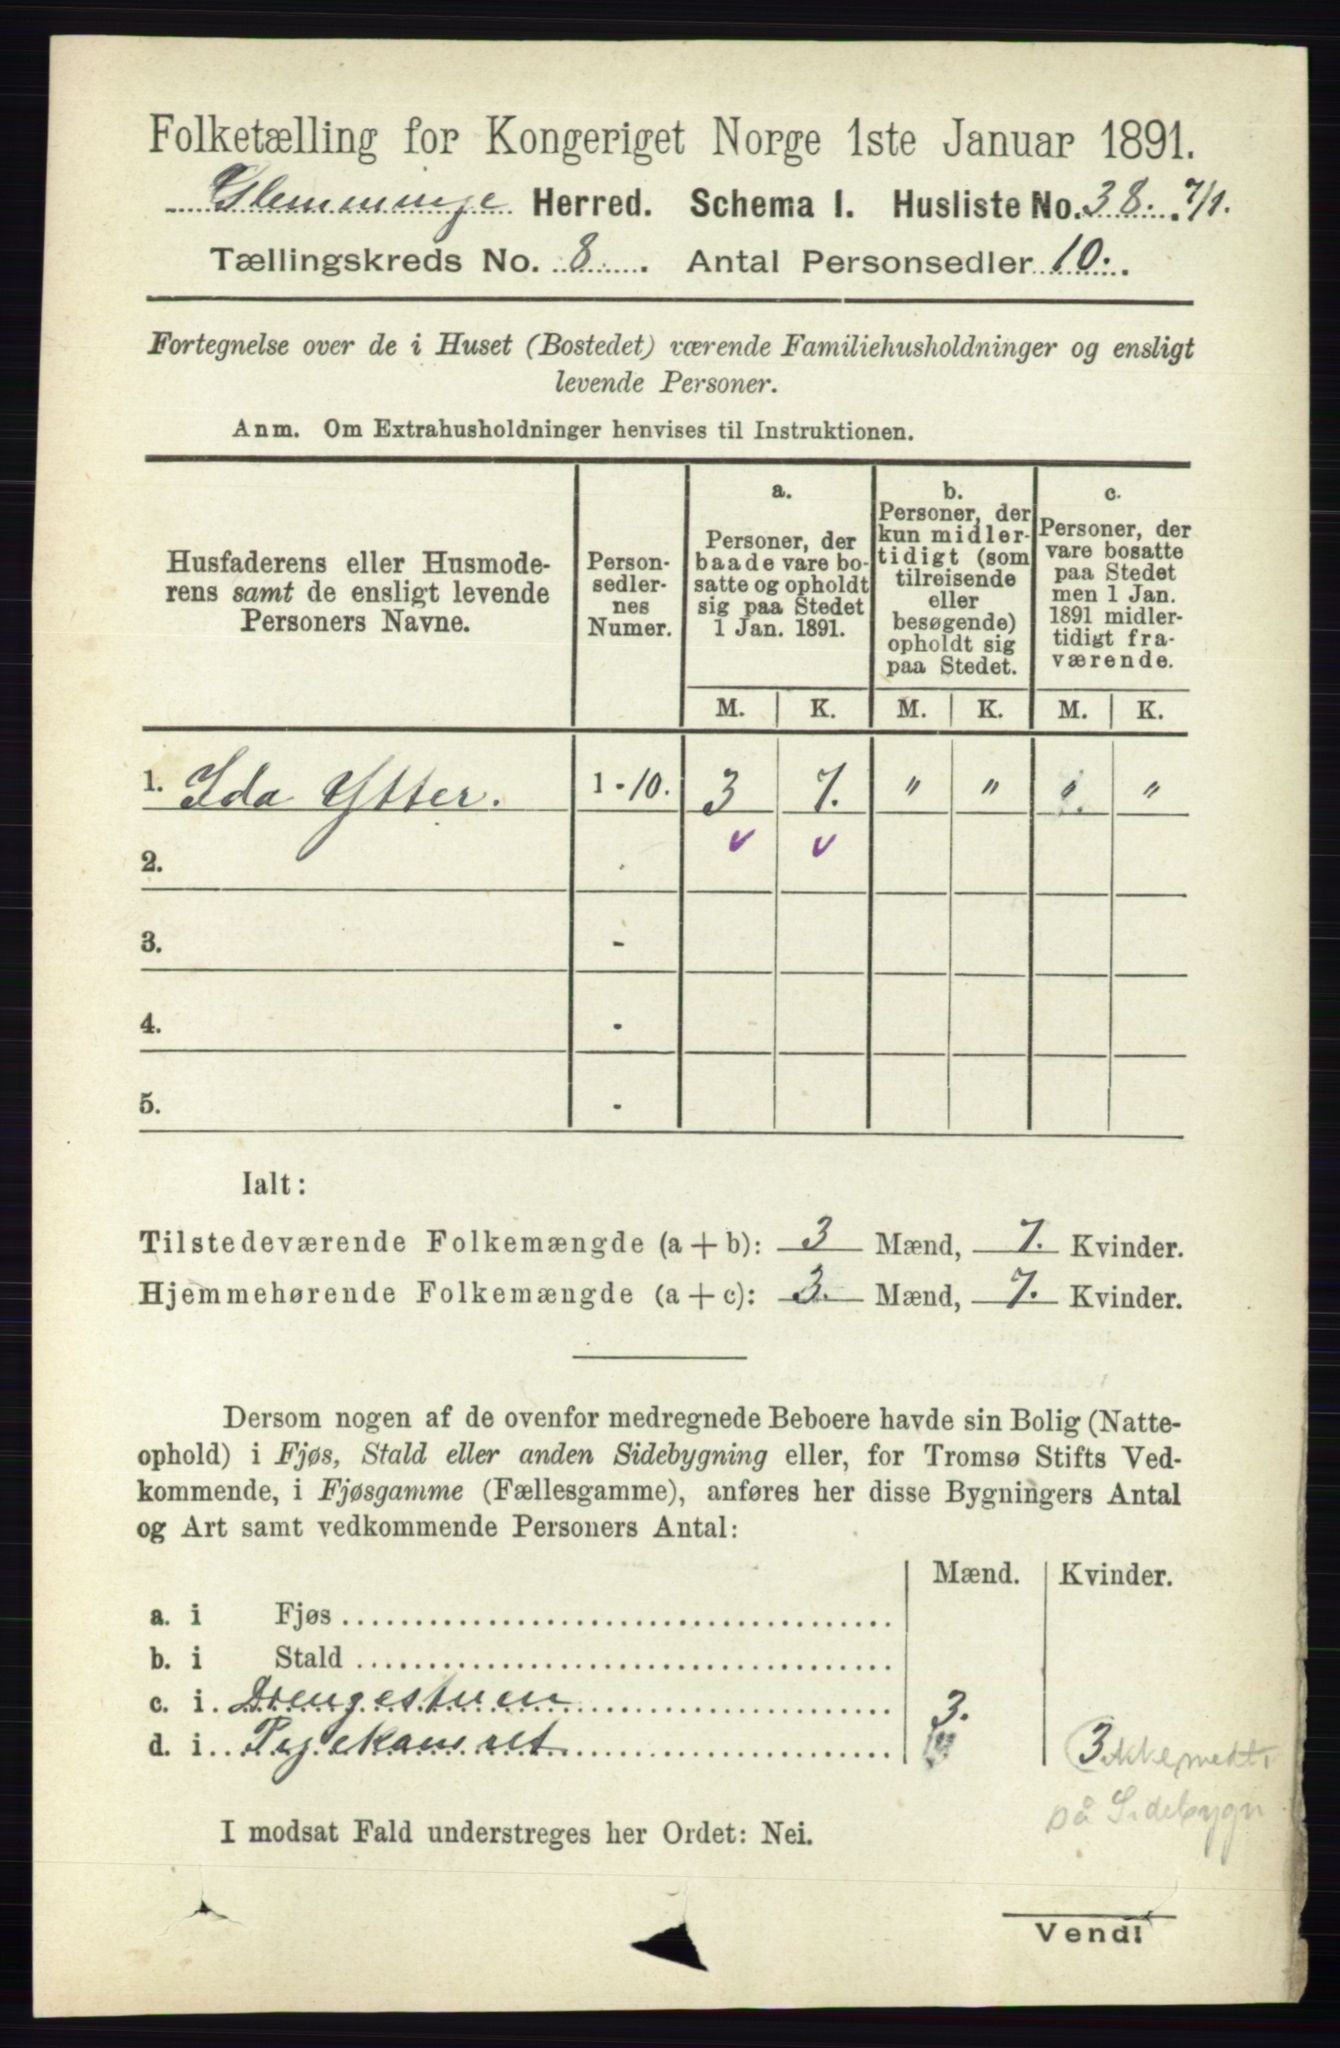 Folketælling for Kongeriget Norge 1ste Januar 1891.
Glemminge Herred. Schema I. Husliste No. 38. 7/1.
Tællingskreds No. 8. Antal Personsedler 10.
Fortegnelse over de i Huset (Bostedet) værende Familiehusholdninger og ensligt
levende Personer.
Anm. Om Extrahusholdninger henvises til Instruktionen.
Husfaderens eller Husmode-
rens samt de ensligt levende
Personers Navne.
Person-
sedler-
nes
Numer.
a.
Personer, der
baade vare bo-
satte og opholdt
sig paa Stedet
1 Jan. 1891.
b.
Personer, der
kun midler-
tidigt (som
tilreisende
eller
besøgende)
opholdt sig
paa Stedet.
c.
Personer, der
vare bosatte
paa Stedet
men 1 Jan.
1891 midler-
tidigt fra-
værende.
M. K. M. K. M. K.
1. Ida Ytter. 1-10. 3 7. " " " "
2.
3. -
4. -
5. -
Ialt:
Tilstedeværende Folkemængde (a+b): 3 Mænd, 7. Kvinder.
Hjemmehørende Folkemængde (a+c): 3. Mænd, 7. Kvinder.
Dersom nogen af de ovenfor medregnede Beboere havde sin Bolig (Natte-
ophold) i Fjøs, Stald eller anden Sidebygning eller, for Tromsø Stifts Ved-
kommende, i Fjøsgamme (Fællesgamme), anføres her disse Bygningers Antal
og Art samt vedkommende Personers Antal:
Mænd. Kvinder.
a. i Fjøs
b. i Stald
c. i Drengestuen 3.
d. i Pigekam 3 Ikke medt.
på Sidebygn
I modsat Fald understreges her Ordet: Nei.
Vend!